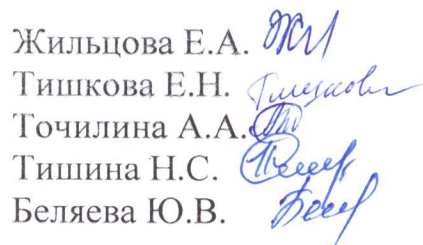 Жильцова Е.А.
Тишкова Е.Н.
Точилина А.А.
Тишина Н.С.
Беляева Ю.В.